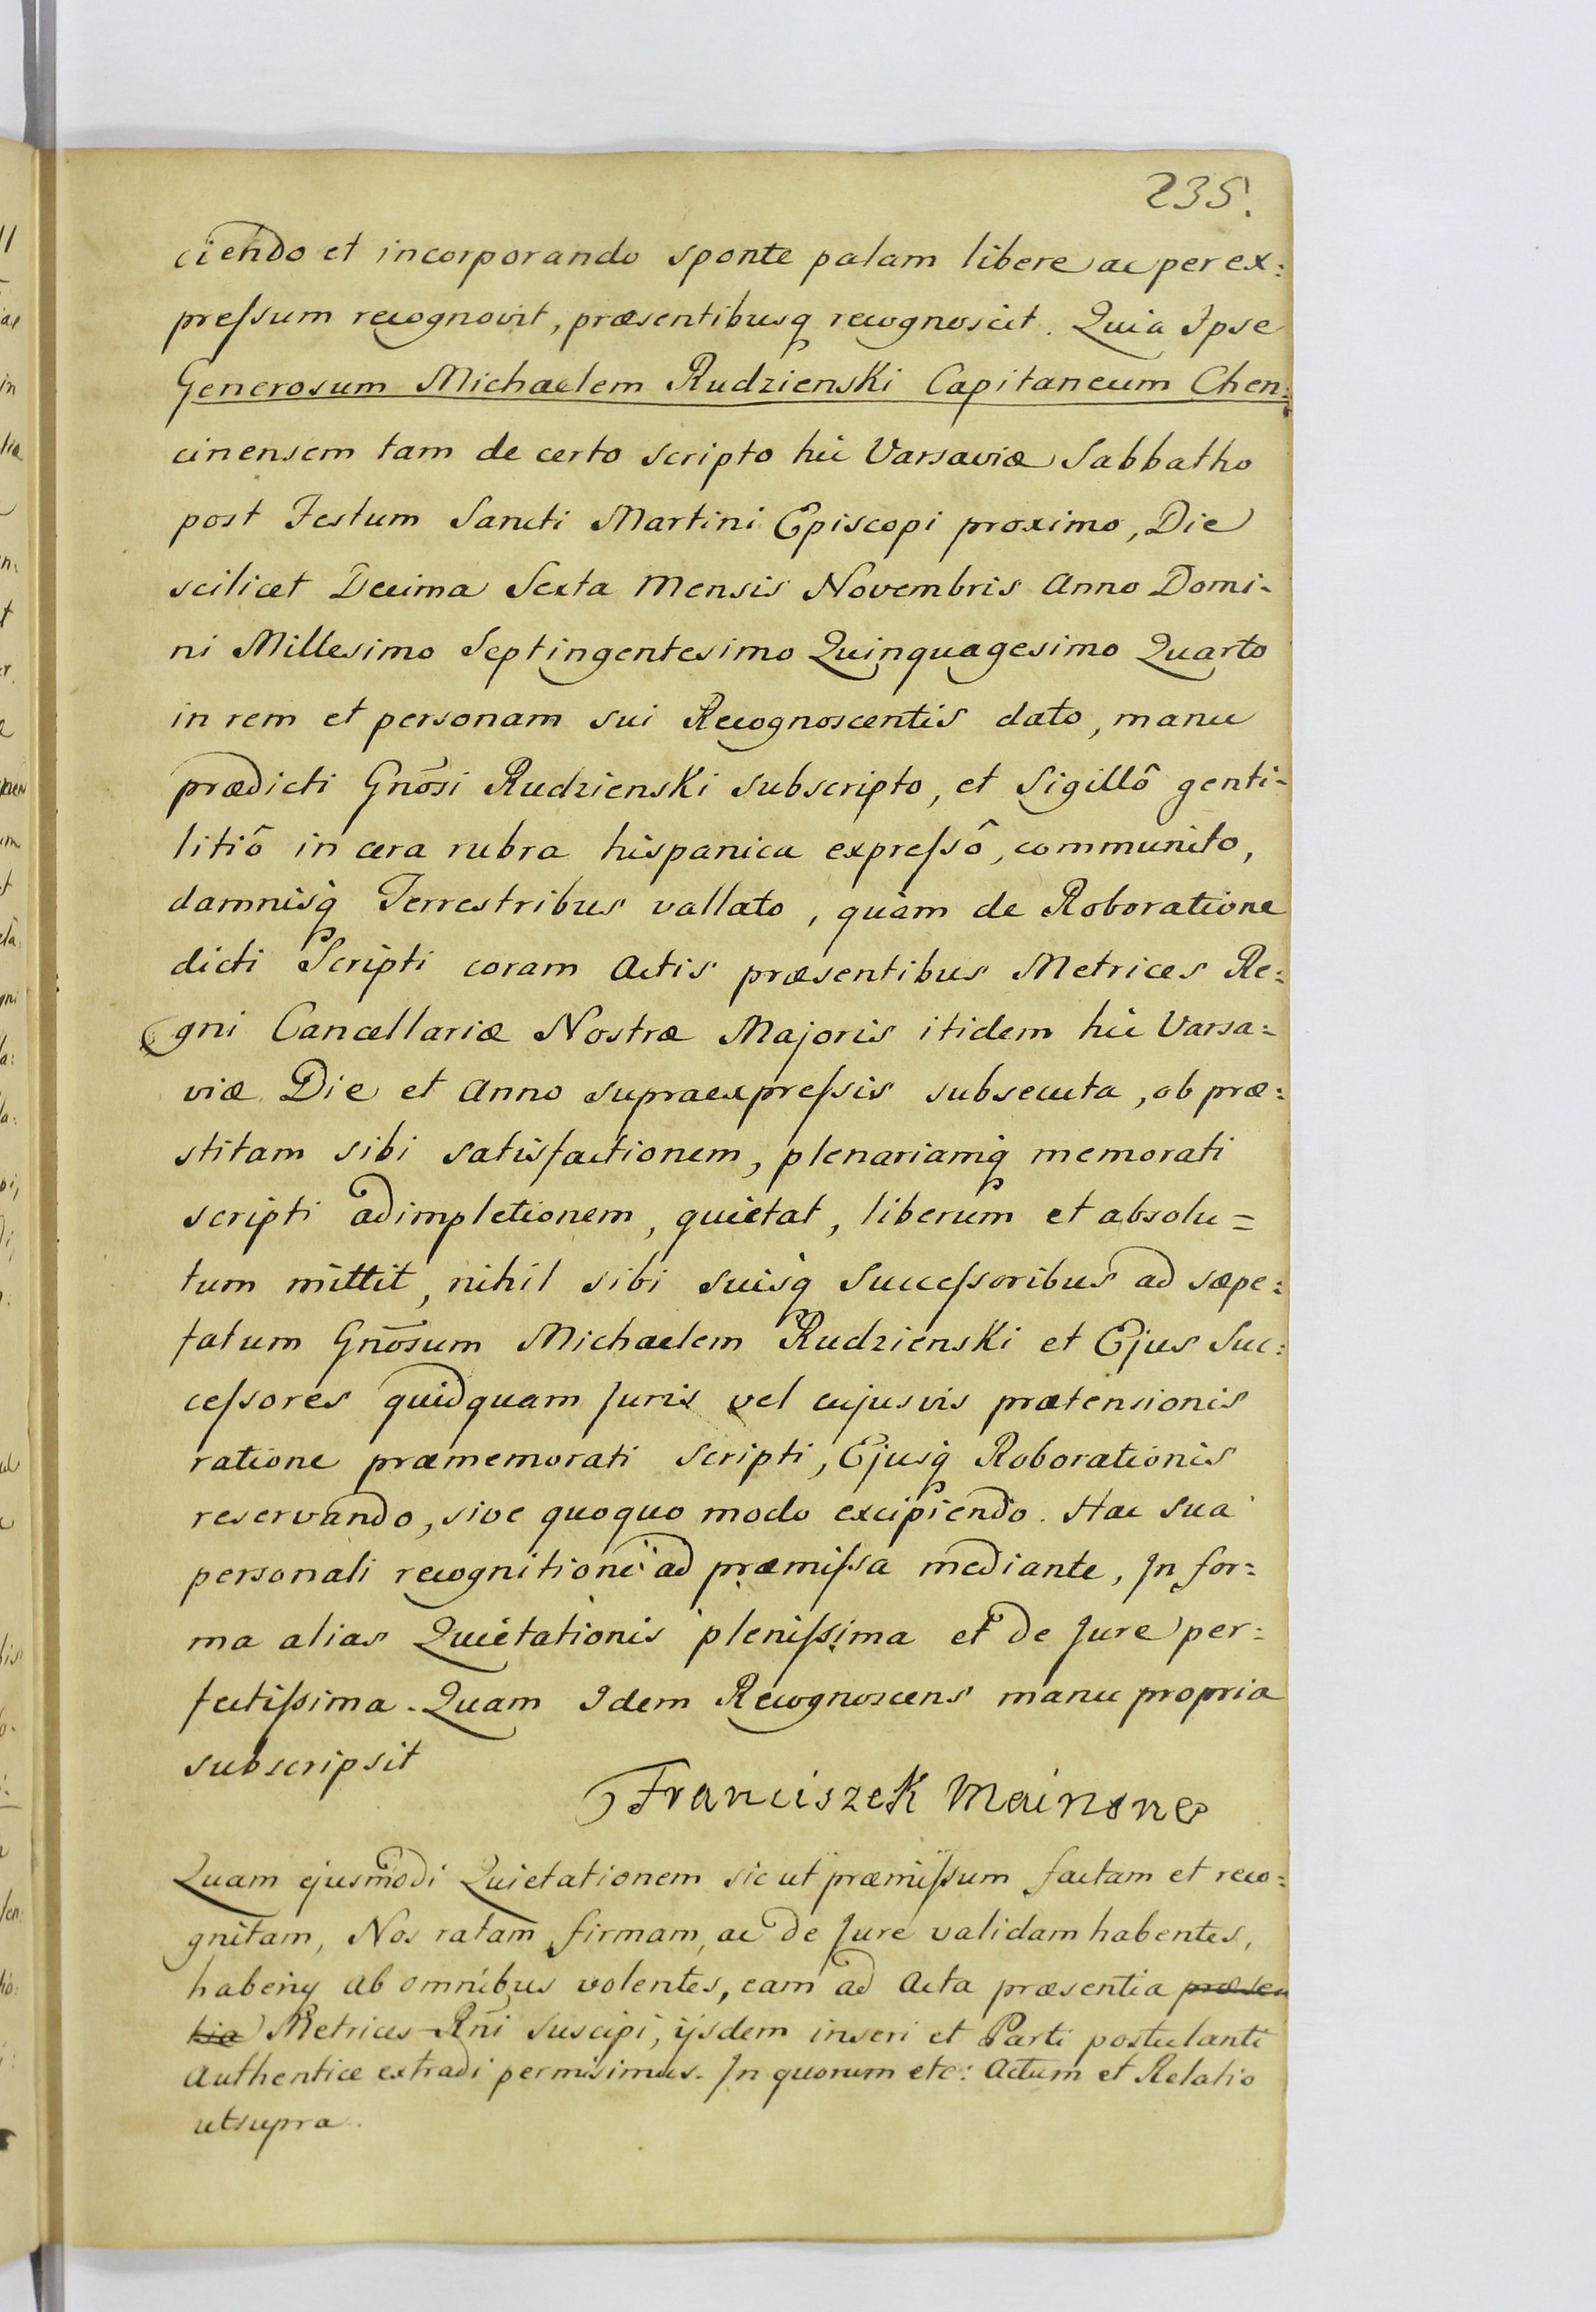 235.
ciendo et incorporando sponte palam libere ac per ex:
preſsum recognovit, præsentibusq recognoscit. Quia Ipse
Generosum Michaelem Rudzienski Capitaneum Chen:
cinensem tam de certo scripto hic Varsaviæ Sabbatho
post Festum Sancti Martini Episcopi proximo, Die
scilicet Decima Sexta Mensis Novembris Anno Domi-
ni Millesimo Septingentesimo Quinquagesimo Quarto
in rem et personam sui Recognoscentis dato, manu
prædicti Gnōsi Rudzienski subscripto, et Sigillô genti-
litiô in cera rubra hispanica expreſsô, communito,
damnisq Terrestribus vallato, quàm de Roboratione
dicti Scripti coram Actis præsentibus Metrices Re:
gni Cancellariæ Nostræ Majoris itidem hic Varsa=
viæ Die et Anno supraexpreſsis subsecuta, ob præ:
stitam sibi satisfactionem, plenariamq memorati
scripti adimpletionem, quietat, liberum et absolu=
tum mittit, nihil sibi suisq Succeſsoribus ad sæpe:
fatum Gnōsum Michaelem Rudzienski et Ejus Suc:
ceſsores quidquam Juris vel cujusvis prætensionis
ratione præmemorati scripti, Ejusq Roborationis
reservando, sive quoquo modo excipiendo. Hac sua
personali recognitione ad præmiſsa mediante, In for=
ma alias Quietationis pleniſsima et de Jure per=
fectiſsima. Quam Idem Recognoscens manu propria
subscripsit
Franciszek Mainone
Quam ejusmodi Quietationem sic ut præmiſsum factam et reco:
gnitam, Nos ratam, firmam, ac de Jure validam habentes,
haberiq ab omnibus volentes, eam ad Acta præsentia præsen
tia Metrices Rñi Suscipi, ijsdem inseri et Parti postulanti
Authentice extradi permisimus. In quorum etc: Actum et Relatio
utsupra.